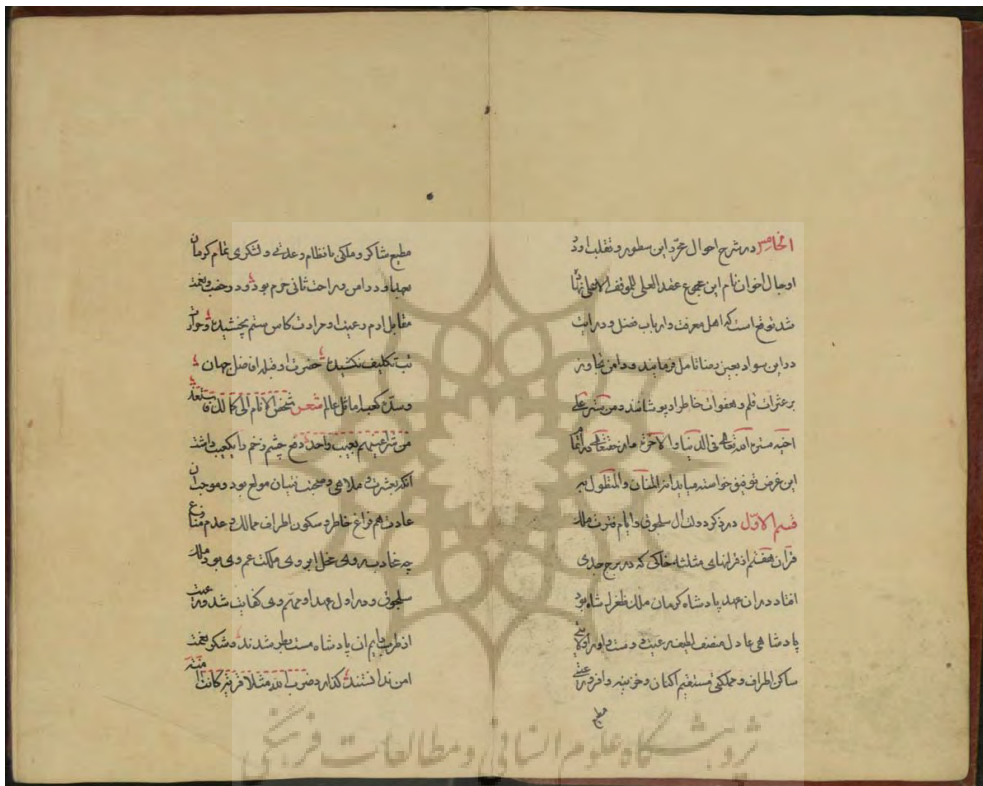 الخامس در شرح احوال محرّر این سطور و تقلب او در
اوجال اخوان نام این مجموع عقد العلی للموقف الاعلی نهاده
شد توقع است که اهل معرفت و ارباب فضل و درایت
در این سواد بعین رضا تامل فرمایند و دامن تجاوز
بر عثرات قلم و هفوات خاطر او پوشانند و من ستر علی
اخیه ستره الله تعالی فی الدنیا والاخرة
این غرض توفیق خواسته میاید انه المنان و المتطول به
قسم الاول در ذکر دولت آل سلجوق و ایام فترت ملک
قران هفتم از قرانهای مثلثه خاکی که در برج جدی
افتاد در ان عهد پادشاه کرمان ملک طغرلشاه بود
پادشاهی عادل منصف لطیفه
ساکن اطراف و مملکتی مستقیم اکناف و خزینه وافر و رعیتی
مطیع
مطیع شاکر و ملکی با نظام و عدتی و لشکری تمام کرمان
مهیا و در امن و راحت ثانی حرم بود و در خصب و نعمت
مقابل ارم رعیت او حرارت کاس ستم نچشیده و حرارت
تب تکلیف نکشیده حضرت او قبله افاضل جهان
و سدّه کعبه اماثل عالم شعر شخص الانام الی کمالک فاستعذ
من شر اعینهم بعیب واحد دفع چشم زخم را یک عیب داشت
آنکه بعشرت و ملاهی و صحبت زنان مولع بود و موجب آن
عادت هم فراغ خاطر و سکون اطراف ممالک و عدم منازع
چه غادبه روی عز ابروی مملکت عم وی بود ملک
سلجوق و در اول عهد او مهم وی کفایت شد و رعیت
از طرب دایم ان پادشاه مست بطر شدند و شکر نعمت
امن ندانستند گذارد ضرب الله مثلا قریة کانت امنة
پژوهشگاه علوم انسانی و مطالعات فرهنگی